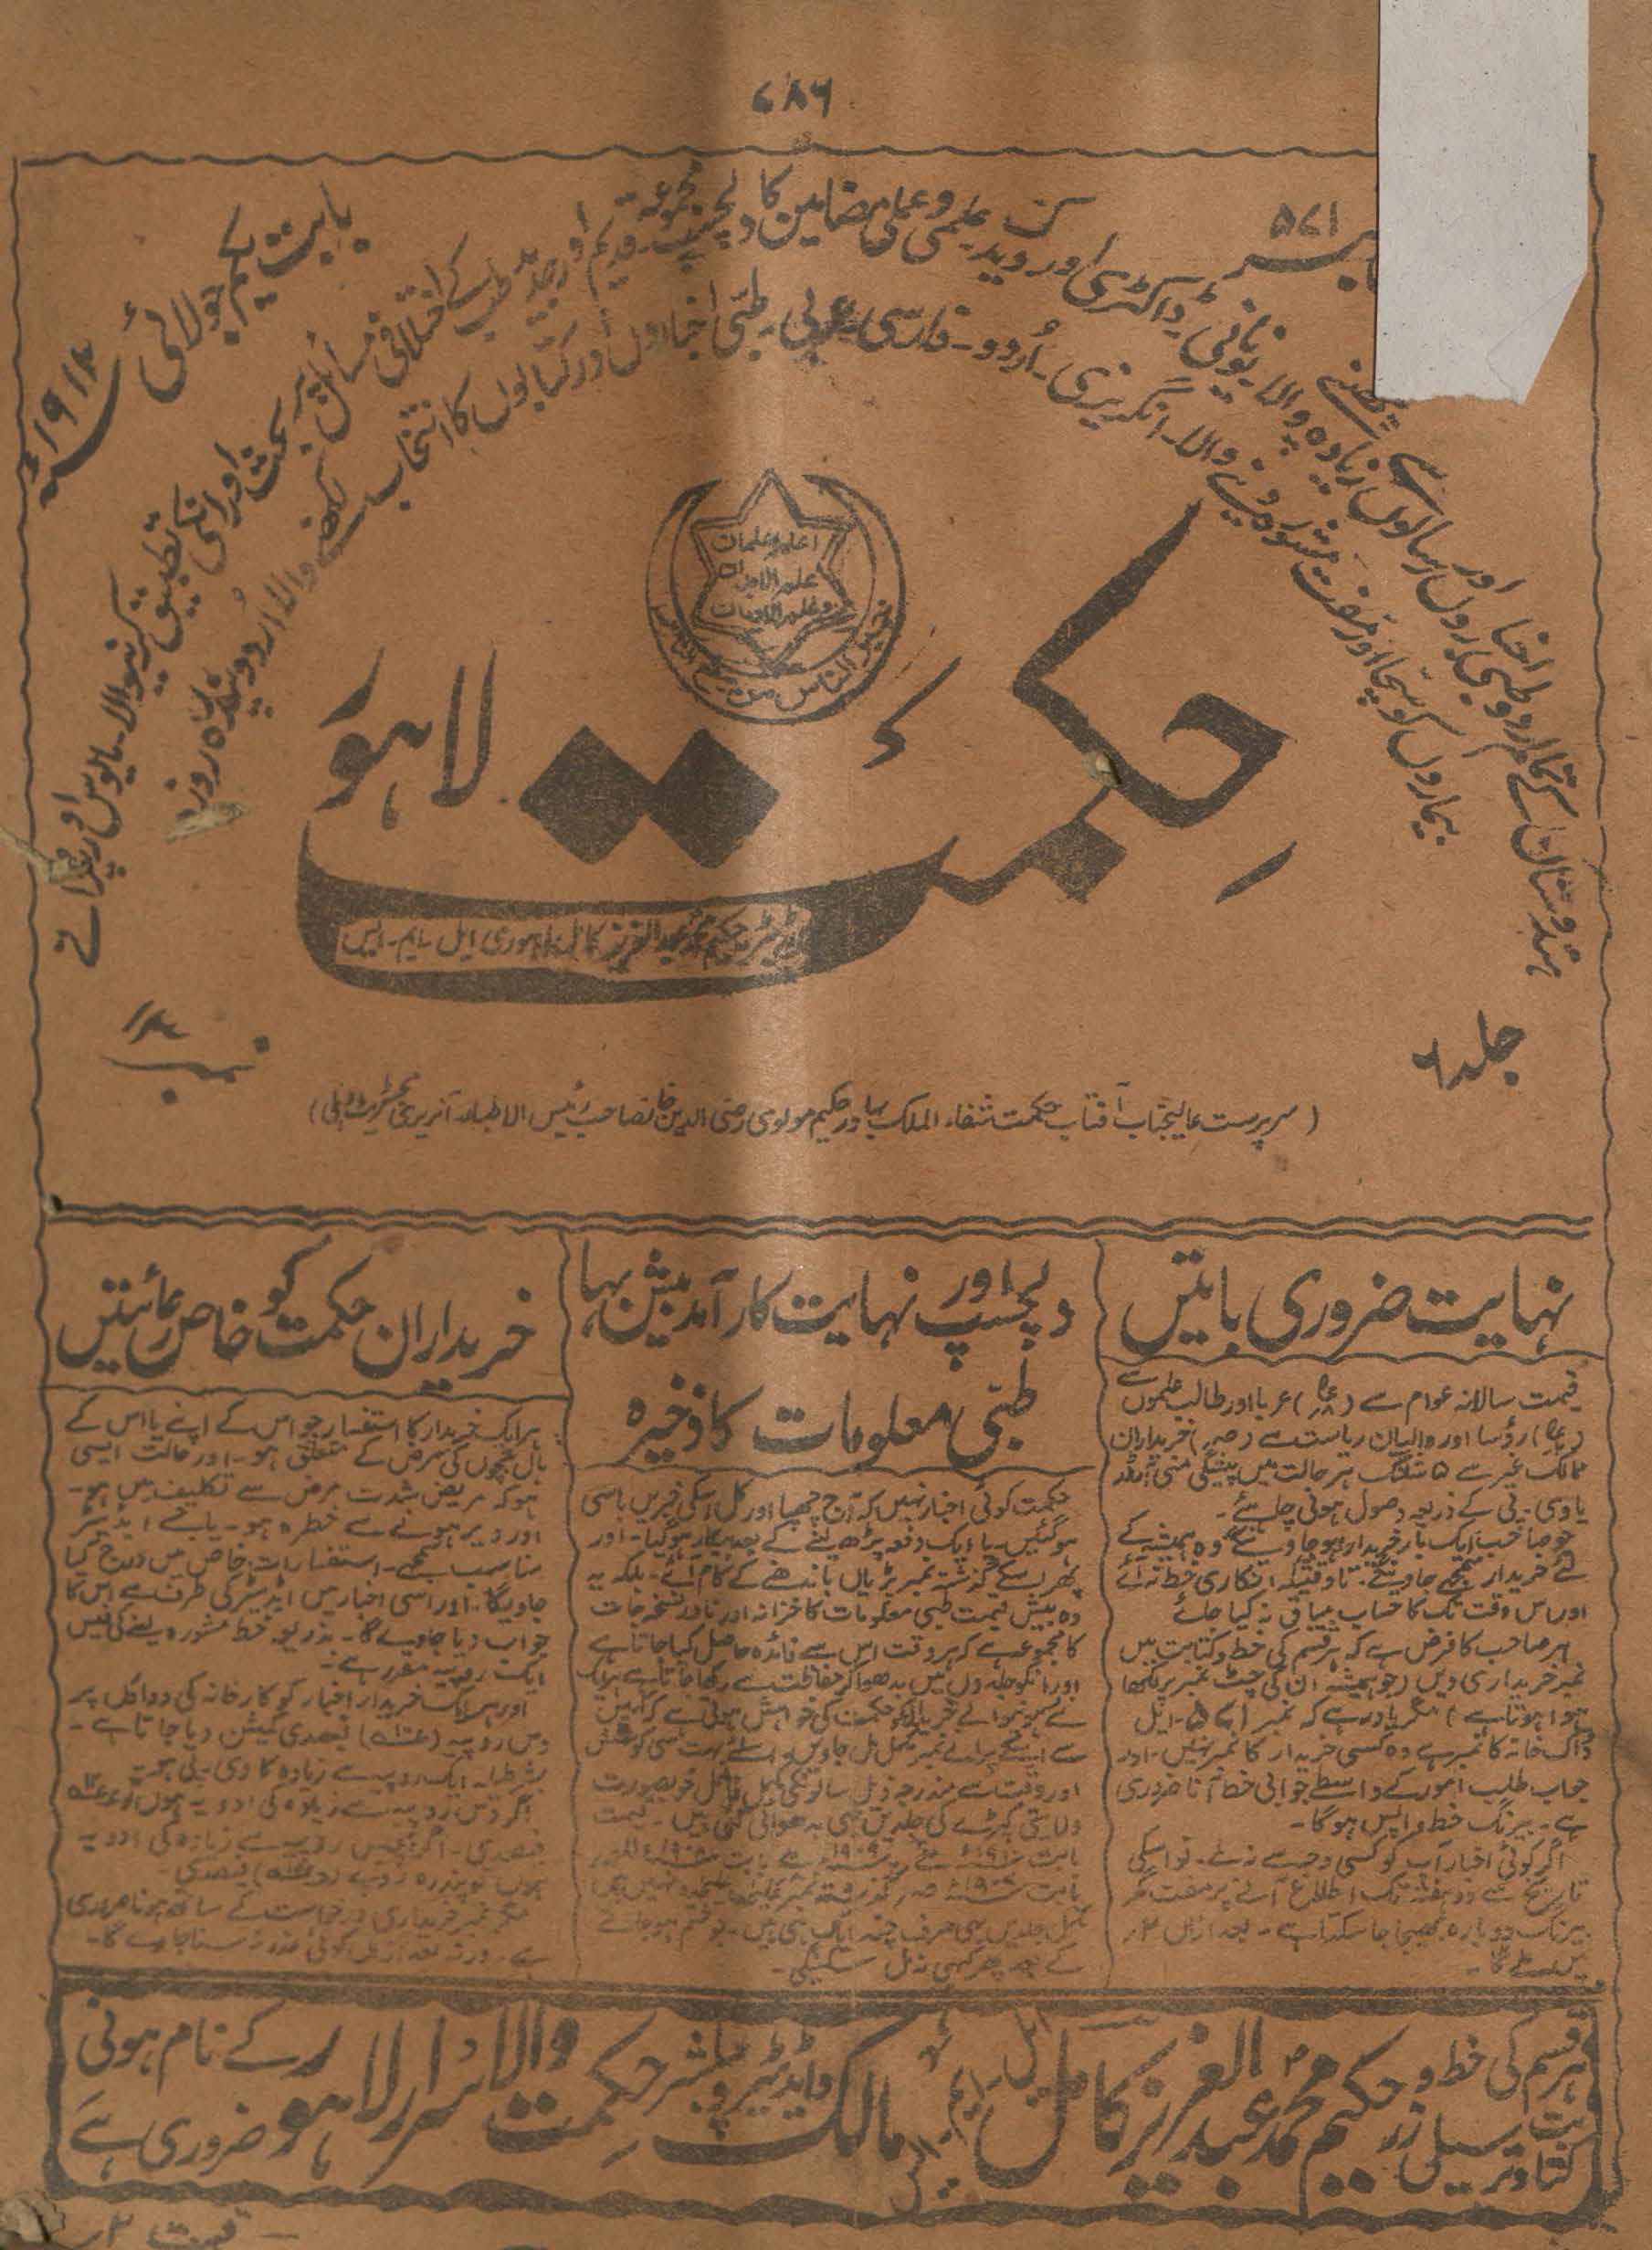 ۷۸۶
۵۷۱
بابت یکم جولائی
۱۹۱۴ء
ہندوستان کے تمام اردو طبی اخباروں اور رسالوں سے زیادہ چھپنے والا۔ یونانی ڈاکٹری اور ویدک علمی و عملی مضامین کا دلچسپ مجموعہ۔ قدیم اور جدید طب کے اختلافی مسائل پر بحث اور انکی تطبیق کرنیوالا۔ مایوس اور پرانے
بیماروں کو سچا اور مفت مشورہ دینے والا۔ انگریزی۔ اُردو۔ فارسی عربی۔ طبّی اخباروں اور کتابوں کا انتخاب رکھنے والا اردو پندرہ روزہ
اعلم و علمان
علم الابدان
و علم الادیان
خیر الناس من ینفع الناس
حکمت
لاہور
ایڈیٹر حکیم محمد عبدالعزیز کامل لاہوری ایل۔ ایم۔ ایس
جلد ۶
نمبر
(سرپرست عالیجناب آفتاب حکمت شفاء الملک بہادر حکیم مولوی رضی الدین خانصاحب رئیس الاطباء۔ آنریری مجسٹریٹ دہلی)
نہایت ضروری باتیں
قیمت سالانہ عوام سے غربا اور طالب علموں سے
رؤسا اور والیان ریاست سے خریداران
ممالک غیر سے ۵ شلنگ ہر حالت میں پیشگی منی آرڈر
یا وی۔ پی کے ذریعہ وصول ہونی چاہئے۔
جو صاحب ایک بار خریدار ہو جاوینگے وہ ہمیشہ کے
لئے خریدار سمجھے جاوینگے۔ تاوقتیکہ انکاری خط نہ آئے
اور اس وقت تک کا حساب بیباق نہ کیا جائے
ہر صاحب کا فرض ہے کہ ہر قسم کی خط و کتابت میں
نمبر خریداری دیں (جو ہمیشہ ان کی چٹ نمبر پر لکھا
ہوا ہوتا ہے) مگر یاد رہے کہ نمبر ۵۷۱۔ ایل
ڈاک خانہ کا نمبر ہے وہ کسی خریدار کا نمبر نہیں۔ اور
جواب طلب امور کے واسطے جوابی خط آنا ضروری
ہے۔ بیرنگ خط واپس ہوگا۔
اگر کوئی اخبار آپ کو کسی وجہ سے نہ ملے۔ تو اسکی
تاریخ سے دو ہفتہ تک اطلاع آنے پر مفت مگر
بیرنگ دوبارہ بھیجا جا سکتا ہے۔ بعد ازاں ۲؍
میں ملے گا۔
دلچسپ اور نہایت کار آمد بیش بہا
طبّی معلومات کا ذخیرہ
حکمت کوئی اخبار نہیں کہ آج چھپا اور کل اسکی خبریں باسی
ہوگئیں۔ یا ایک دفعہ پڑھ لینے کے بعد بیکار ہوگیا۔ اور
پھر اسکے گذشتہ نمبر پڑیاں باندھنے کے کام آئے۔ بلکہ یہ
وہ بیش قیمت طبی معلومات کا خزانہ اور نادر نسخہ جات
کا مجموعہ ہے کہ ہر وقت اس سے فائدہ حاصل کیا جاتا ہے
اور انکو جلدوں میں بندھوا کر حفاظت سے رکھا جاتا ہے ہر ایک
نئے ہونیوالے خریدار کو حکمت کی خواہش ہوتی ہے کہ کہیں
سے اسکے پرانے نمبر مکمل مل جاویں۔ اسلئے بہت سی کوشش
اور وقت سے مندرجہ ذیل سالونکی مکمل فائل خوبصورت
ولایتی کپڑے کی جلدیں بھی بندھوائی گئی ہیں۔ قیمت
بابت ۱۹۱۰ء ۱۹۰۹ء بابت ۱۹۰۸ء
بابت ۱۹۰۷ء گذشتہ نمبر علیحدہ علیحدہ نہیں ہیں
مکمل جلدیں بھی صرف چند ایک ہی ہیں۔ جو ختم ہو جانے
کے بعد پھر کبھی نہ مل سکینگی۔
خریداران حکمت کو خاص رعائتیں
ہر ایک خریدار کا استفسار جو اس کے اپنے یا اس کے
بال بچوں کی مرض کے متعلق ہو۔ اور حالت ایسی
ہو کہ مریض شدت مرض سے تکلیف میں ہو۔
اور دیر ہونے سے خطرہ ہو۔ یا جسے ایڈیٹر
مناسب سمجھے۔ استفسارات خاص میں درج کیا
جاویگا۔ اور اسی اخبار میں ایڈیٹر کی طرف سے اس کا
جواب دیا جاوے گا۔ بذریعہ خط مشورہ لینے کی فیس
ایک روپیہ مقرر ہے۔
اور ہر ایک خریدار اخبار کو کارخانہ کی دوائل پر
دس روپیہ فیصدی کمیشن دیا جاتا ہے۔
بشرطیکہ ایک روپیہ سے زیادہ کا وی۔ پی ہو۔
اگر دس روپیہ سے زیادہ کی ادویہ ہوں تو
فیصدی۔ اگر پچیس روپیہ سے زیادہ کی ادویہ
ہوں تو پندرہ روپے فیصدی۔
مگر نمبر خریداری درخواست کے ساتھ ہونا ضروری
ہے۔ ورنہ بعد ازاں کوئی عذر نہ سنا جاوے گا۔
ہر قسم کی خط و کتابت و ترسیل زر حکیم محمد عبدالعزیز کامل ایل۔ ایم۔ ایس مالک و ایڈیٹر و پبلشر حکمت و الاسرار لاہور کے نام ہونی ضروری ہے
قیمت ۲؍